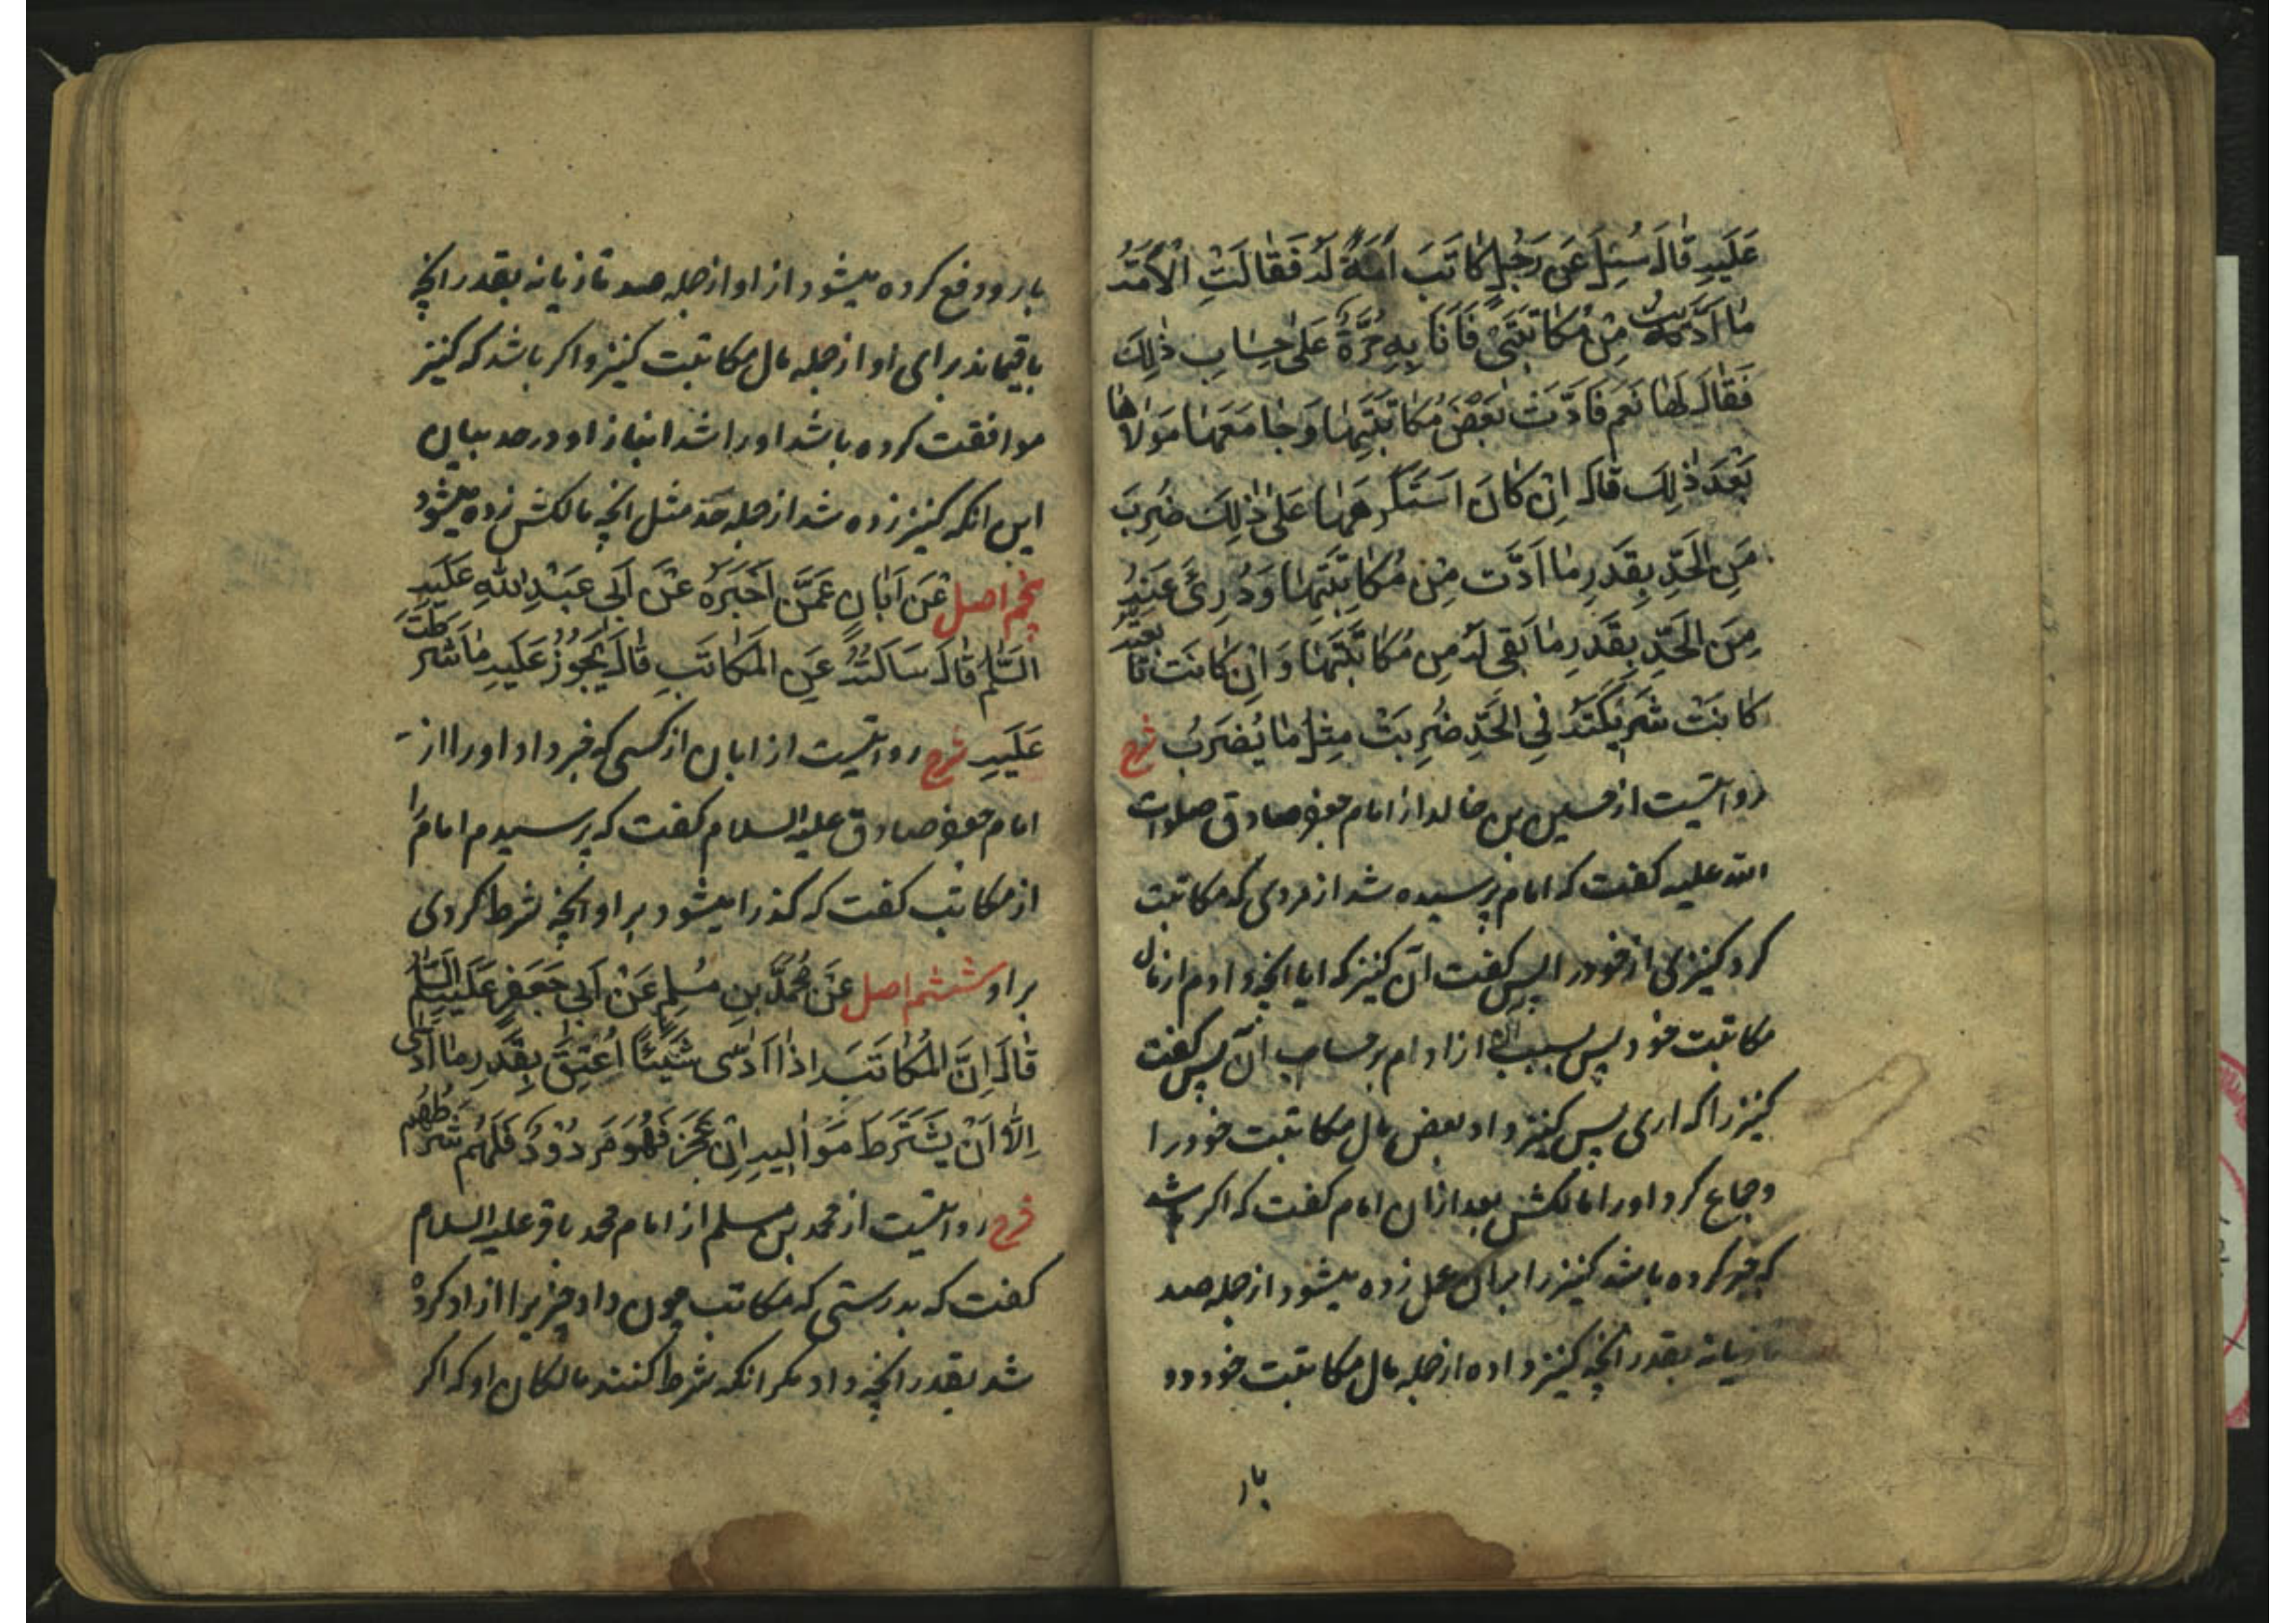 عَلَيهِ قٰالَ سُئِلَ عَن رَجُلٍ كٰاتَبَ اَمَةً لَهُ فَقٰالَتِ الْاَمَةُ
مٰا اَدَّيتُ مِن مُكٰاتَبَتى فَاَنَا بِهِ حُرَّةٌ عَلىٰ حِسٰابِ ذٰلِكَ
فَقٰالَ لَهٰا نَعَم فَاَدَّت بَعْضَ مُكٰاتَبَتِهٰا وَجٰامَعَهٰا مَوْلاٰهٰا
بَعْدَ ذٰلِكَ قٰالَ اِن كٰانَ اسْتَكْرَهَهٰا عَلىٰ ذٰلِكَ ضُرِبَ
مِنَ الْحَدِّ بِقَدَرِ مٰا اَدَّت مِن مُكٰاتَبَتِهٰا وَدُرِئَ عَنهُ
مِنَ الْحَدِّ بِقَدَرِ مٰا بَقِىَ لَهُ مِن مُكٰاتَبَتِهٰا وَاِن كٰانَت تٰابَعَتهُ
كٰانَتْ شَرِيكَتَهُ فِى الْحَدِّ ضُرِبَتْ مِثلَ مٰا يُضرَبُ شرح
روايتست از حسين بن خالد از امام جعفر صادق صلوات
الله عليه كفت كه امام پرسيده شد از مردى كه مكاتبت
كرد كنيزى از خود را پس كفت آن كنيز كه ايا انچه دادم از مال
مكاتبت خود پس بسبب ان ازادام بر حساب آن پس كفت
كنيز را كه ارى پس كنيز داد بعض مال مكاتبت خود را
وجماع كرد او را مالكش بعد ازان امام كفت كه اكر باشد
كه جبر كرده باشد كنيز را بران عمل زده ميشود از جمله صد
تازيانه بقدر انچه كنيز داده از جمله مال مكاتبت خود دو
بار
بار ودفع كرده ميشود از او از جمله صد تازيانه بقدر انچه
باقيماند براى او از جمله مال مكاتبت كنيز واكر باشد كه كنيز
موافقت كرده باشد او را شد انباز او در حد بيان
اين انكه كنيز زده شد از جمله حد مثل انچه مالكش زده ميشود
پنجم اصل عَن اَبٰانٍ عَمَّن اَخبَرَهُ عَن اَبى عَبْدِ اللّٰهِ عَلَيهِ
السَّلٰمُ قٰالَ سَاَلتُهُ عَنِ المُكٰاتَبِ قٰالَ يَجُوزُ عَلَيهِ مٰا شَرَطَت
عَلَيهِ شرح روايتست از ابان از كسى كه خبر داد او را از
امام جعفر صادق عليه السلام كفت كه پرسيدم امام را
از مكاتب كفت كه كذرا ميشود بر او انچه شرط كردى
بر او ششم اصل عَن مُحَمَّدِ بنِ مُسلِمٍ عَن اَبى جَعفَرٍ عَلَيهِ السَّلٰمُ
قٰالَ اِنَّ المُكٰاتَبَ اِذٰا اَدّىٰ شَيئًا اُعتِقَ بِقَدَرِ مٰا اَدّىٰ
اِلّاٰ اَنْ يَشتَرِطَ مَوٰاليهِ اِن عَجَزَ فَهُوَ مَردُودٌ فَلَهُم شَرطُهُم
شرح روايتست از محمد بن مسلم از امام محمد باقر عليه السلام
كفت كه بدرستى كه مكاتب چون داد چيزيرا ازاد كرده
شد بقدر انچه داد مكر انكه شرط كنند مالكان او كه اكر